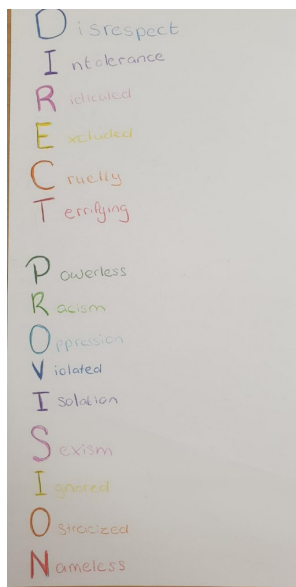 Disrespect
Intolerance
Ridiculed
Excluded
Cruelty
Terrifying
Powerless
Racism
Oppression
Violated
Isolation
Sexism
Ignored
Ostracized
Nameless